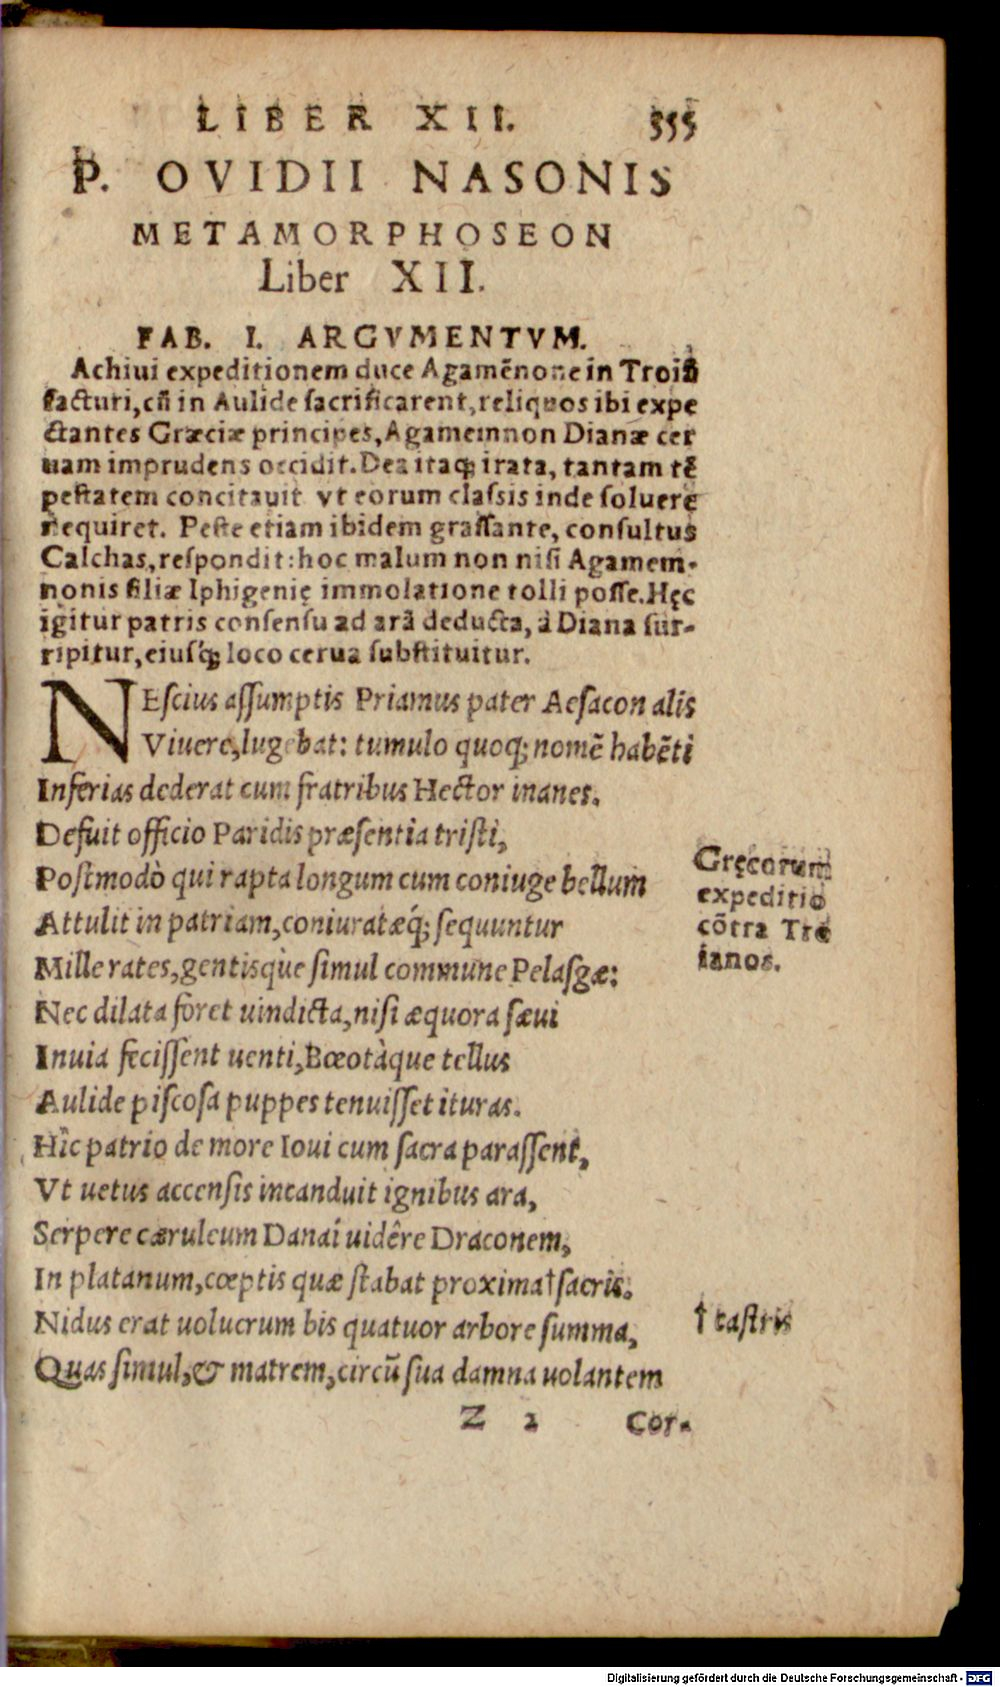 LIBER XII. 355
P. OVIDII NASONIS
METAMORPHOSEON
Liber XII.
FAB. I. ARGVMENTVM.
Achiui expeditionem duce Agamēnone in Troiā
facturi, cū in Aulide sacrificarent, reliquos ibi expe
ctantes Græciæ principes, Agamemnon Dianæ cer
uam imprudens occidit. Dea itaq; irata, tantam tē
pestatem concitauit vt eorum classis inde soluere
nequiret. Peste etiam ibidem grassante, consultus
Calchas, respondit: hoc malum non nisi Agamem-
nonis filiæ Iphigenię immolatione tolli posse. Hęc
igitur patris consensu ad arā deducta, à Diana sur-
ripitur, eiusq́; loco cerua substituitur.
NEscius assumptis Priamus pater Aesacon alis
Viuere, lugebat: tumulo quoq; nomē habēti
Inferias dederat cum fratribus Hector inanes.
Defuit officio Paridis præsentia tristi,
Postmodò qui rapta longum cum coniuge bellum
Attulit in patriam, coniuratæq́; sequuntur
Mille rates, gentisq̀ue simul commune Pelasgæ:
Nec dilata foret uindicta, nisi æquora sæui
Inuia fecissent uenti, Bœotàque tellus
Aulide piscosa puppes tenuisset ituras.
Hîc patrio de more Ioui cum sacra parassent,
Vt uetus accensis incanduit ignibus ara,
Serpere cæruleum Danai uidêre Draconem,
In platanum, cœptis quæ stabat proxima † sacris.
Nidus erat uolucrum bis quatuor arbore summa,
Quas simul, & matrem, circū sua damna uolantem
Z 2 Cor-
Gręcorum
expeditio
cōtra Tro
ianos.
† castris
Digitalisierung gefördert durch die Deutsche Forschungsgemeinschaft - DFG